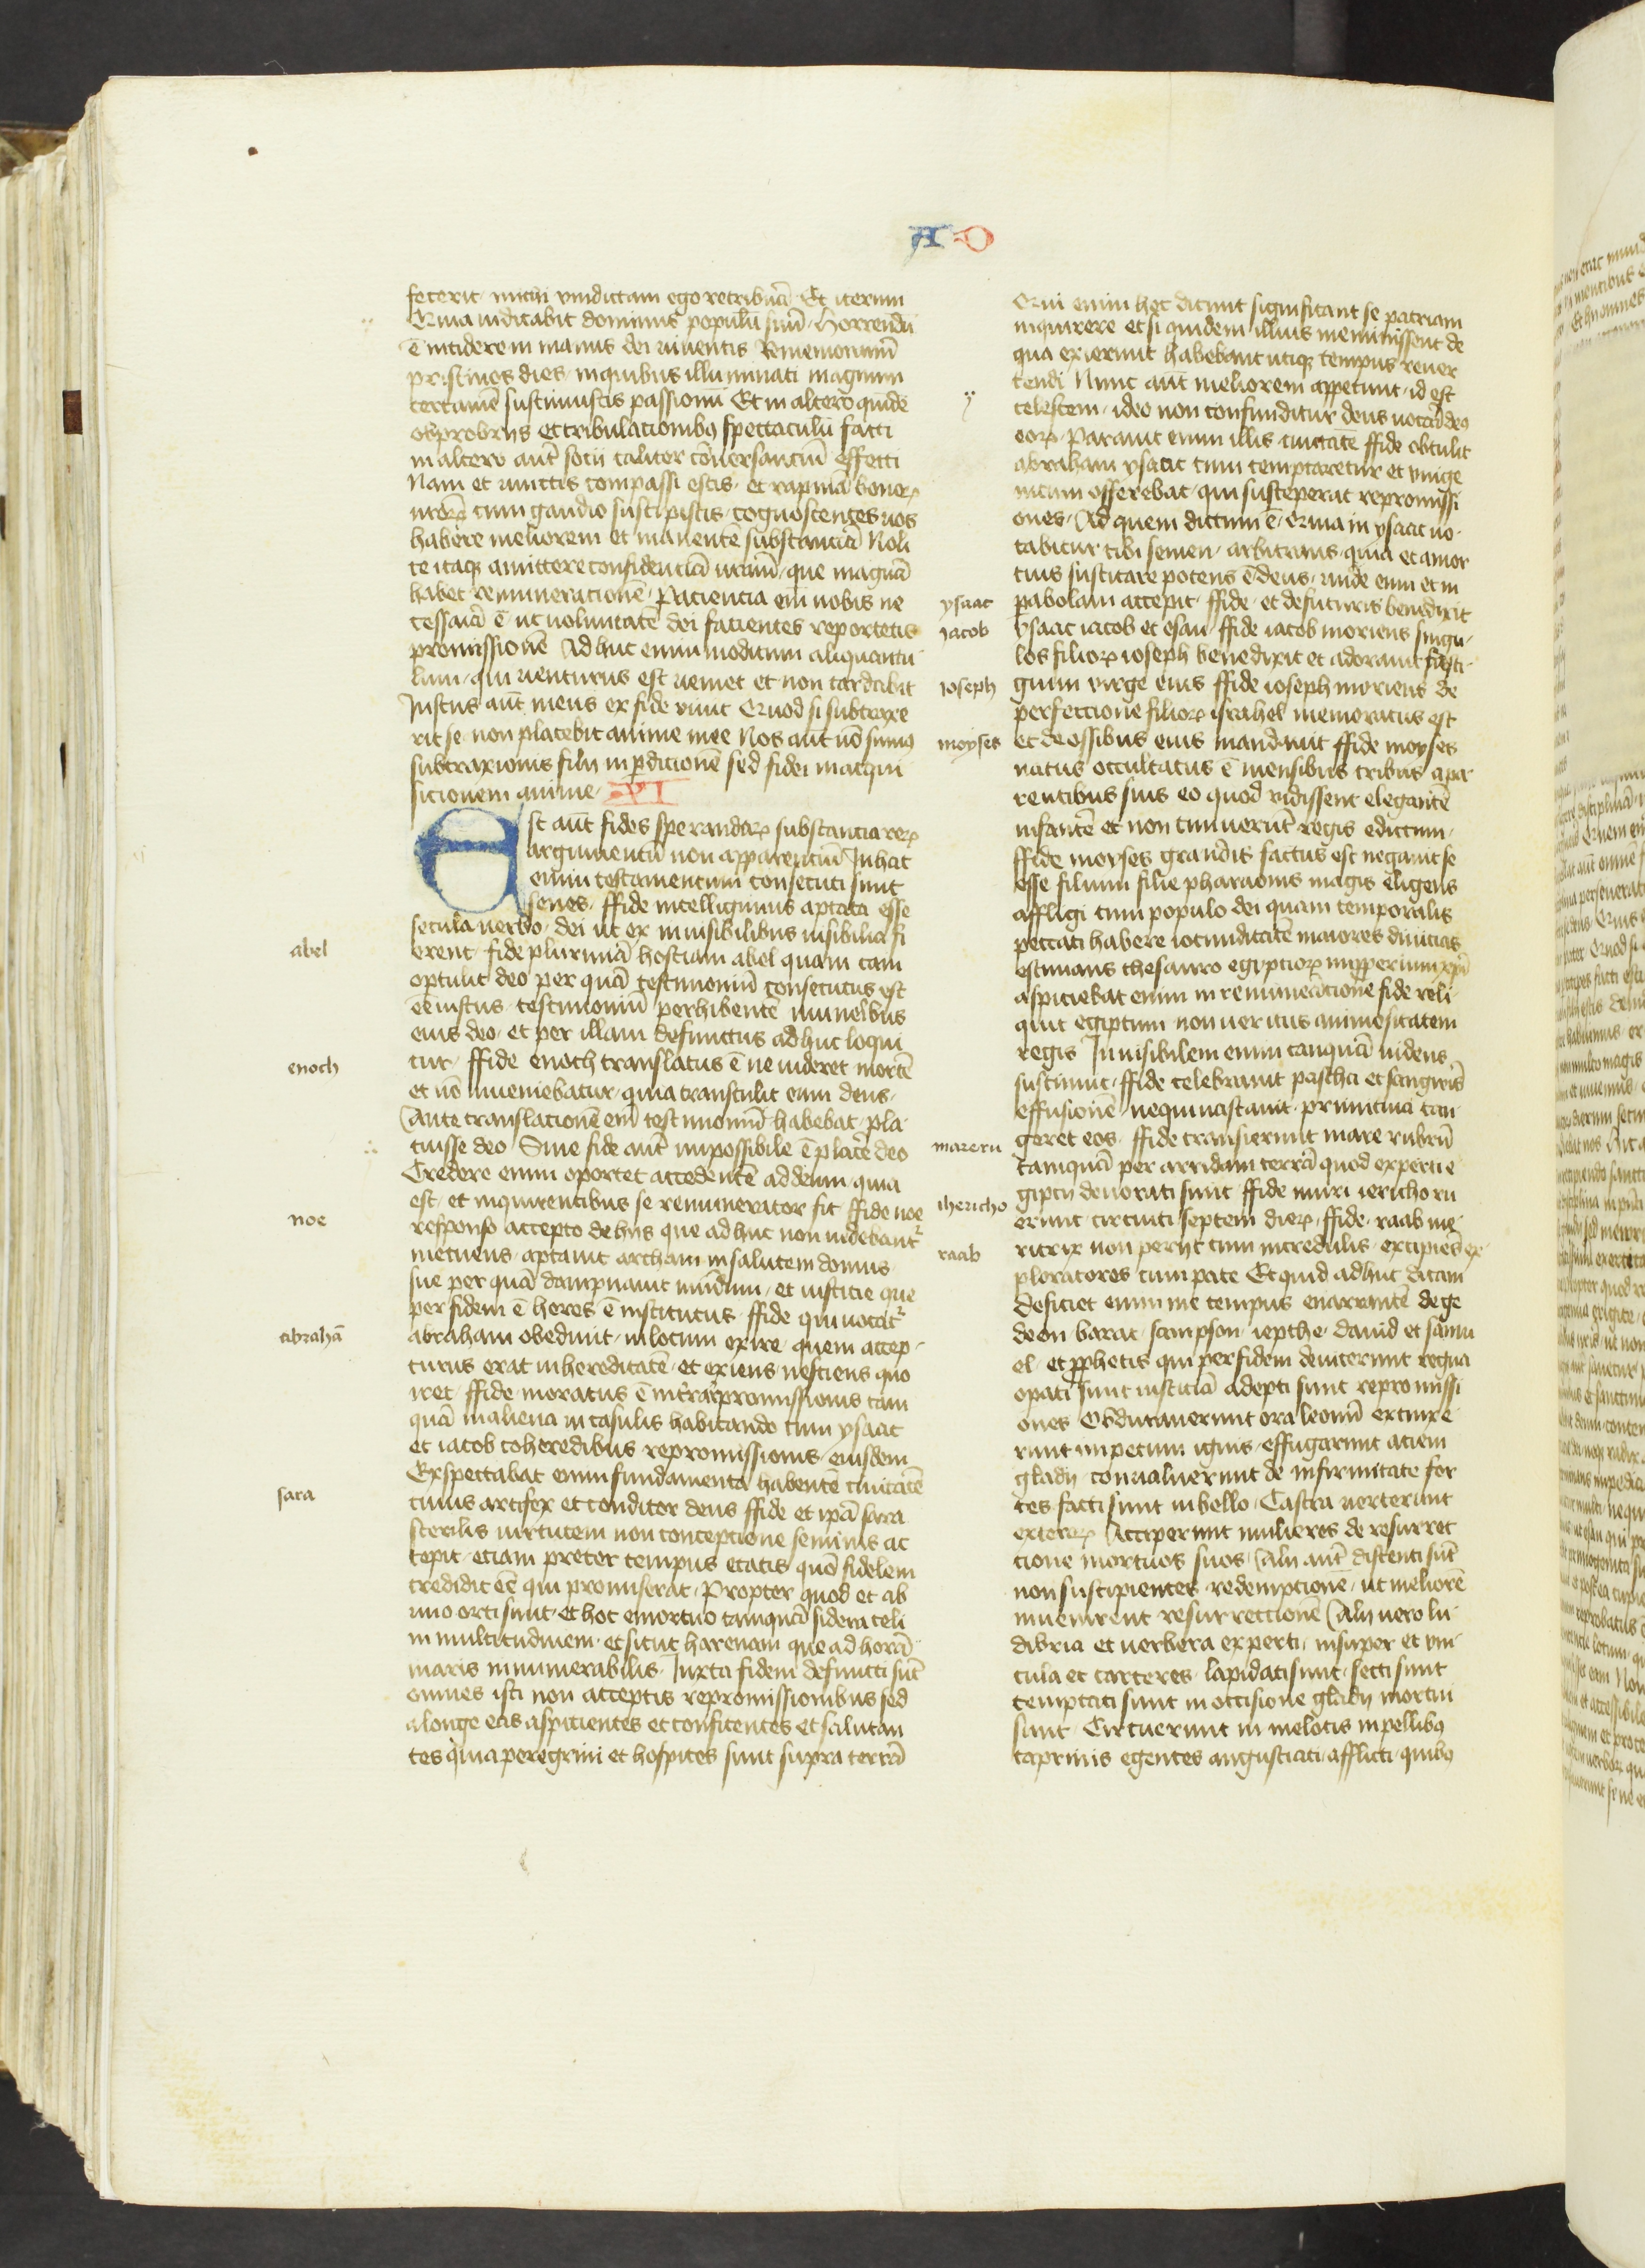 A D
fecerit michi vindictam ego retribuā Et iterum
Quia iudicabit dominus populū suū Horrendū
ē incidere in manus dei viuentis Rememoramī
pristinos dies in quibus illuminati magnum
certamē sustinuistis passionū Et in altero quidē
obprobrijs et tribulacionibꝫ spectaculū facti
in altero autē socij taliter cōuersanciū effecti
Nam et vinctis compassi estis et rapinā bonorꝝ
vrōrꝝ cum gaudio suscepistis cognoscentes vos
habere meliorem et manentē substanciā Noli
te itaqꝫ amittere confidenciā vrām que magnā
habet remuneracionē Paciencia eī nobis ne
cessaria ē ut voluntatē dei facientes reportetis
promissionē Adhuc enim modicum aliquantu
lum qui venturus est veniet et non tardabit
Justus aūt meus ex fide viuit Quod si subtraxe
rit se non placebit anime mee Nos aūt nō sumꝫ
subtraxionis filij in ꝑdicionē sed fidei in acqui
sicionem anime XI
Est aūt fides sperandarꝝ substancia rerꝝ
argumentū non apparenciū In hac
enim testamentum consecuti sunt
senes ffide intelligimus aptata esse
abel
secula verbo dei ut ex inuisibilibus visibilia fi
erent fide plurimā hostiam abel quam cain
optulit deo per quā testimoniū consecutus est
eē iustus testimoniū perhibentē muneribus
eius deo et per illam defunctus adhuc loqui
enoch
tur ffide enoch translatus ē ne videret mortē
et nō inueniebatur quia transtulit eum deus
Ante translacionē eī testimoniū habebat pla
cuisse deo Sine fide aūt impossibile ē placē deo
Credere enim oportet accedentē ad deum quia
noe
est et inquirentibus se remunerator sit ffide noe
responso accepto de hijs que adhuc non videbant᷑
metuens aptauit archam in salutem domus
sue per quā dampnauit mūdum et iusticie que
per fidem ē heres ē institutus ffide qui vocat᷑
abrahā
abraham obediuit in locum exire quem accep
turus erat in hereditatē et exiens nesciens quo
iret ffide moratus ē in trā repromissionis tam
quā in aliena in casulis habitando cum ysaac
et iacob coheredibus repromissionis eiusdem
Exspectabat enim fundamenta habentē ciuitatē
sara
cuius artifex et conditor deus ffide et ipā sara
sterilis virtutem non concepcione seminis ac
cepit etiam preter tempus etatis quō fidelem
credidit eē qui promiserat Propter quod et ab
vno orti sunt et hoc emortuo tanquā sidera celi
in multitudinem et sicut harenam que ad horā
maris innumerabilis Juxta fidem defuncti sūt
omnes isti non acceptis repromissionibus sed
a longe eas aspicientes et confitentes et salutan
tes quia peregrini et hospites sunt supra terrā
Qui enim hoc dicunt significant se patriam
inquirere et si quidem illius meminissent de
qua exierunt habebant vtiqꝫ tempus reuer
tendi Nunc aūt meliorem appetunt id est
celestem ideo non confunditur deus vocari deꝫ
eorꝝ Parauit enim illis ciuitatē ffide obtulit
abraham ysaac cum temptaretur et vnige
nitum offerebat qui susceperat repromissi
ones Ad quem dictum ē Quia in ysaac vo
cabitur tibi semen arbitrans quia et a mor
tuis suscitare potens ē deus vnde eum et in
ysaac
ꝑabolam accepit ffide et de futuris benedixit
jacob
ysaac iacob et esau ffide iacob moriens singu
los filiorꝝ ioseph benedixit et adorauit fasti
joseph
gium virge eius ffide ioseph moriens de
perfeccione filiorꝝ israhel memoratus est
moyses
et de ossibus eius mandauit ffide moyses
natus occultatus ē mensibus tribus a pa
rentibus suis eo quod vidissent elegantē
infantē et non timuerūt regis edictum
ffide moyses grandis factus est negauit se
esse filium filie pharaonis magis eligens
affligi cum populo dei quam temporalis
peccati habere iocunditatē maiores diuicias
estimans thesauro egyptiorꝝ impperium xp̄i
aspiciebat enim in remuneracione fide reli
quit egiptum non veritus animositatem
regis Jnuisibilem enim tanquā videns
sustinuit ffide celebrauit pascha et sanguīs
effusionē ne qui vastauit primitiua tan
mare ru
geret eos ffide transierunt mare rubrū
tamquā per arridam terrā quod experti e
ihericho
giptij deuorati sunt ffide muri iericho ru
erunt circuiti septem dierꝝ ffide raab me
raab
ritrix non perijt cum incredulis excipiēs ex
ploratores cum pace Et quid adhuc dicam
Deficiet enim me tempus enarrantē de ge
deon barac sampson iepthe dauid et samu
el et ꝓphetis qui per fidem deuicerunt regna
opati sunt iusticiā adepti sunt repromissi
ones Obduraverunt ora leonū extinxe
runt impetum ignis effugarunt aciem
gladij conualuerunt de infirmitate for
tes facti sunt in bello Castra verterunt
exterorꝝ Acceperunt mulieres de resurrec
cione mortuos suos Alij aūt distenti sūt
non suscipientes redempcionē ut meliorē
inuenirent resurreccionē Alij vero lu
dibria et verbera experti insuper et vin
cula et carceres lapidati sunt secti sunt
temptati sunt in occisione gladij mortui
sunt Circuerunt in melotis in pellibꝫ
caprinis egentes angustiati afflicti quibꝫ